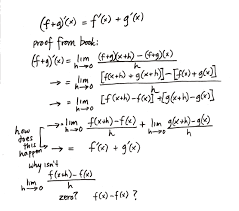 (f+g)'(x) = f'(x) + g'(x)
proof from book:
(f+g)'(x) = lim h→0 (f+g)(x+h) - (f+g)(x) / h
→ = lim h→0 [f(x+h) + g(x+h)] - [f(x) + g(x)] / h
→ = lim h→0 [f(x+h) - f(x)] + [g(x+h) - g(x)] / h
how does this happen → = lim h→0 f(x+h) - f(x) / h + lim h→0 g(x+h) - g(x) / h
→ = f'(x) + g'(x)
why isn't
lim h→0 f(x+h) - f(x) / h
zero? f(x) - f(x) ?